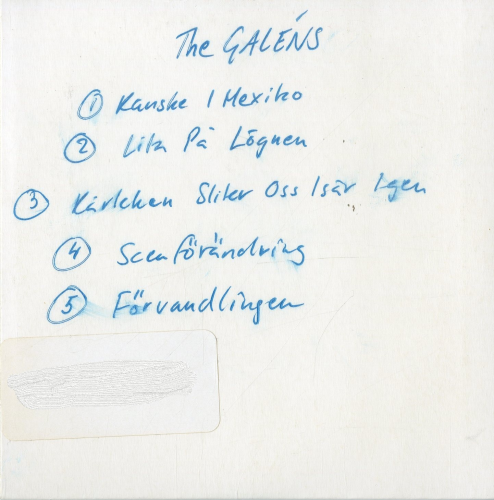 The GALÉNS
① Kanske I Mexiko
② Lita På Lögnen
③ Kärleken Sliter Oss Isär Igen
④ Scenförändring
⑤ Förvandlingen